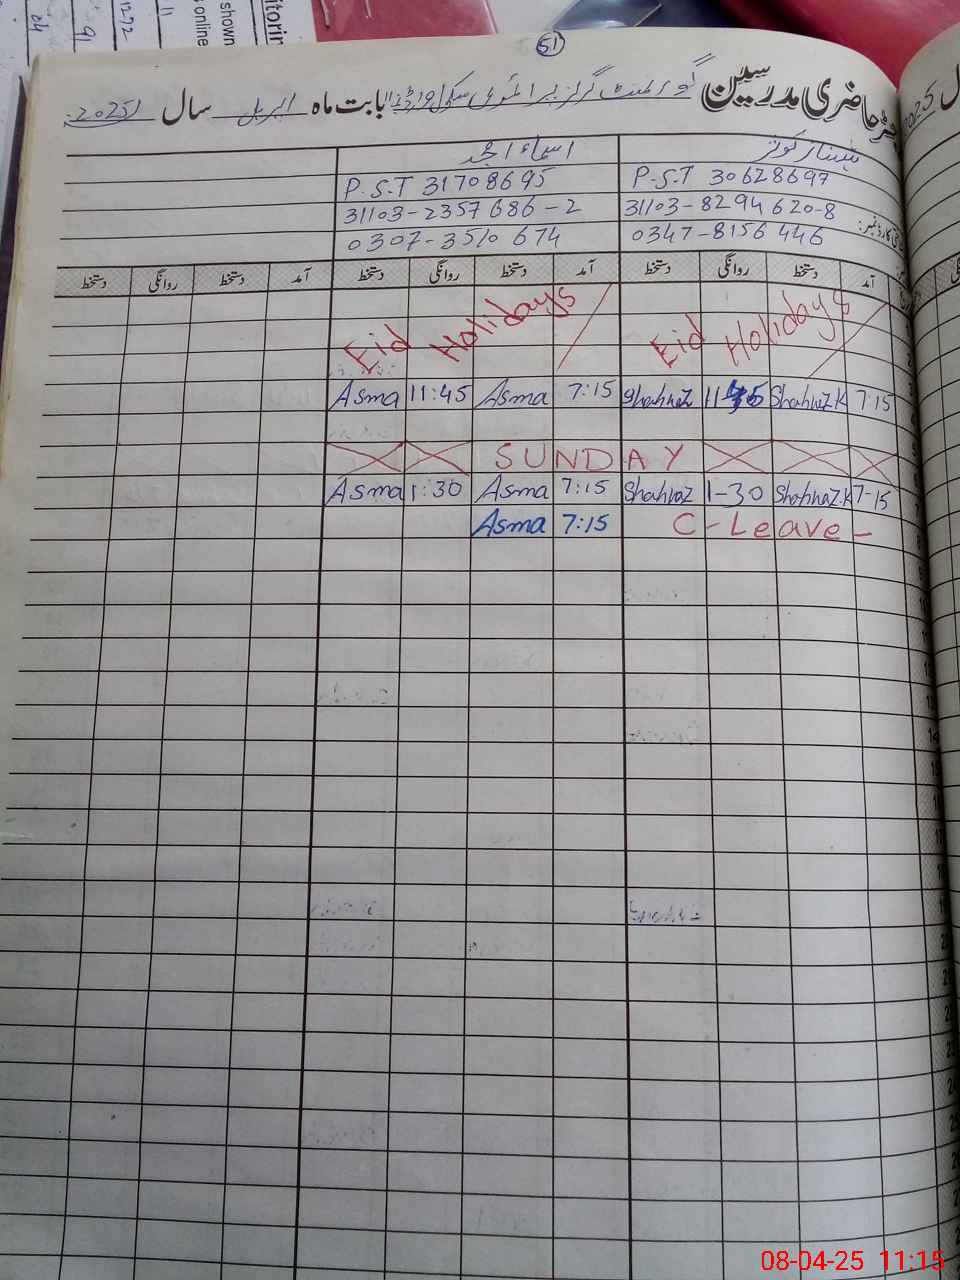 51
رجسٹر حاضری مدرسین گورنمنٹ گرلز پرائمری سکول بابت ماہ اپریل سال 2025
اسماء امجد
P.S.T 30628697 P.S.T 31708695
31103-8294620-8 31103-2357686-2
0347-8156446 0307-3510674
آمد دستخط روانگی دستخط آمد دستخط روانگی دستخط آمد دستخط روانگی دستخط
Eid Holidays Eid Holidays
Asma 11:45 Asma 7:15 Shahnaz 11:45 Shahnaz K 7:15
SUNDAY
Asma 1:30 Asma 7:15 Shahnaz 1-30 Shahnaz.K 7-15
Asma 7:15 C-Leave-
08-04-25 11:15